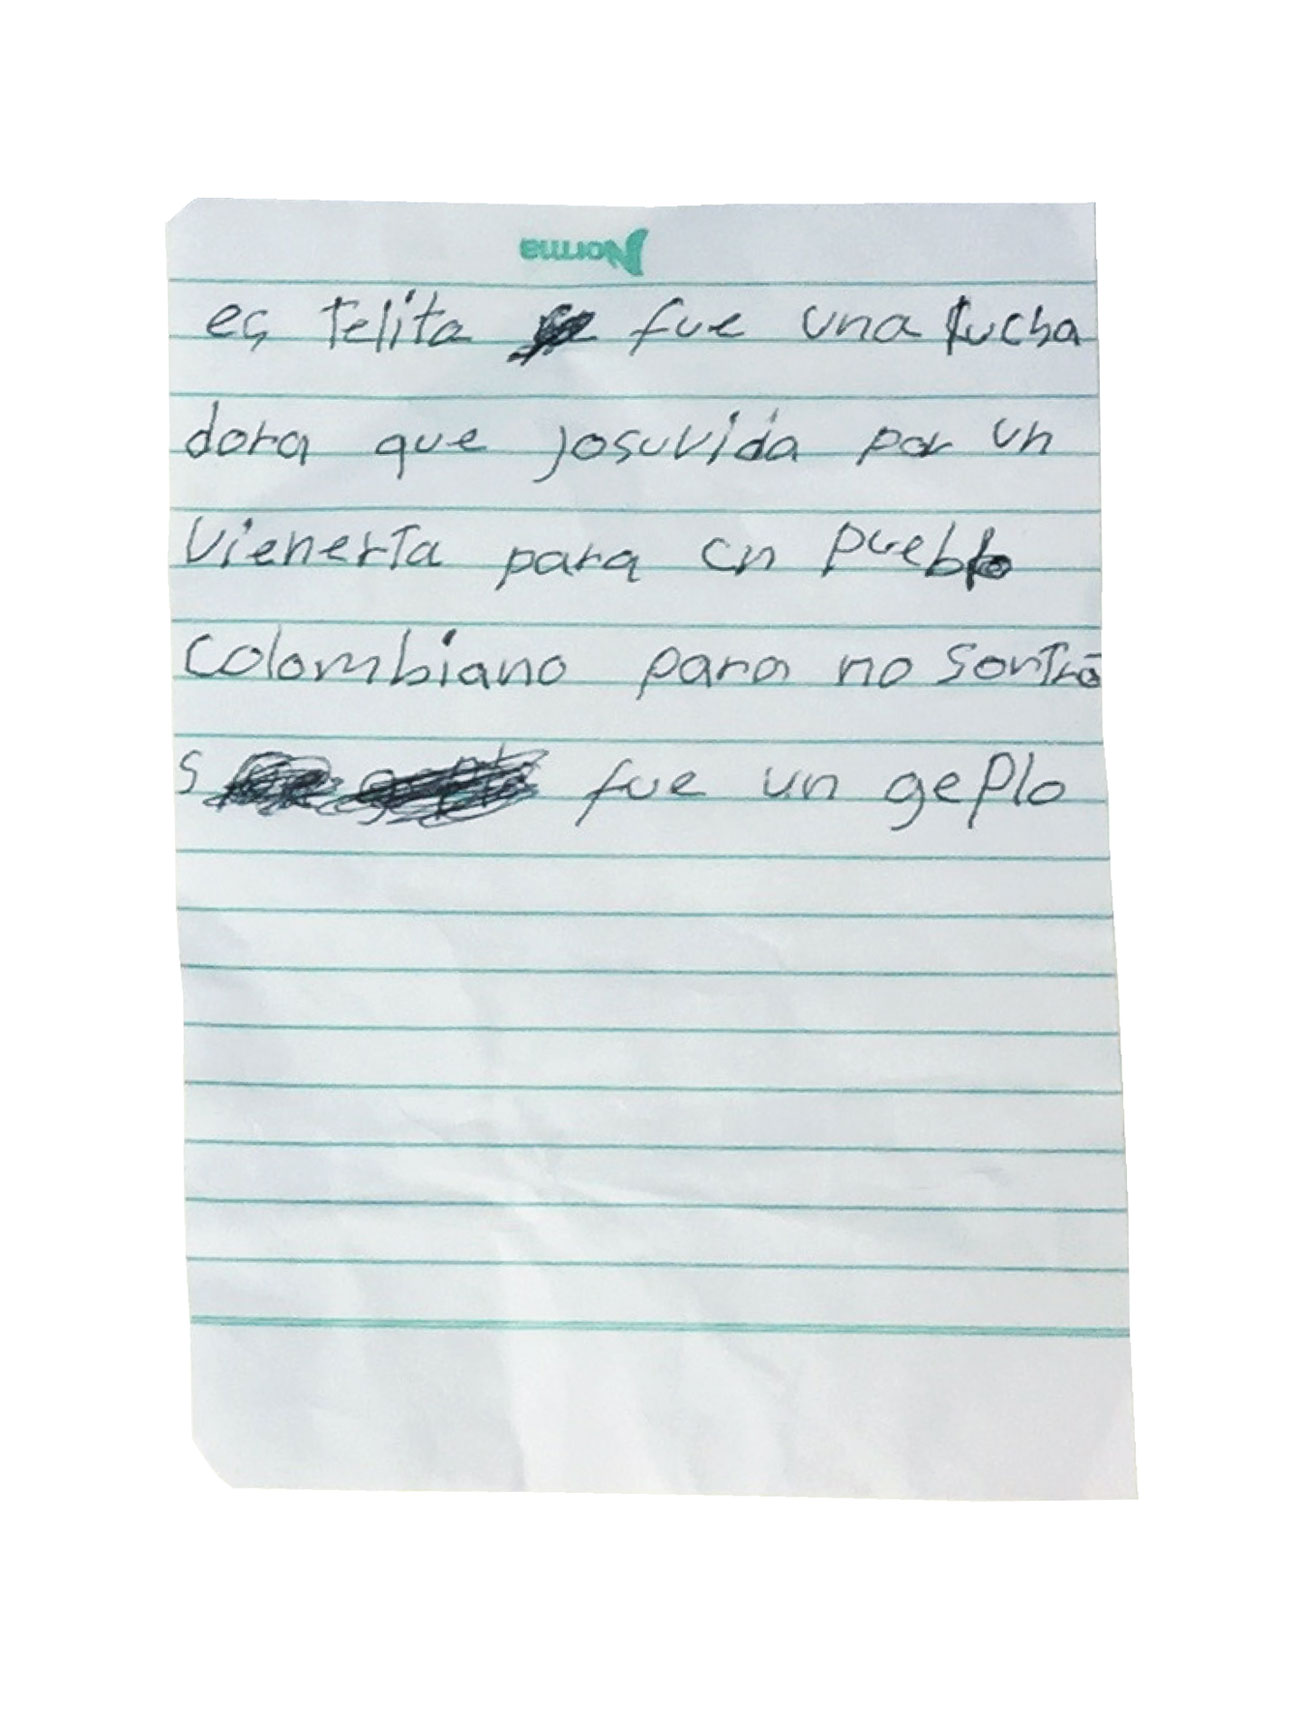 Norma
es Telita fue una lucha
dora que josuvida por un
vienerta para un pueblo
colombiano para no sontro
s fue un geplo